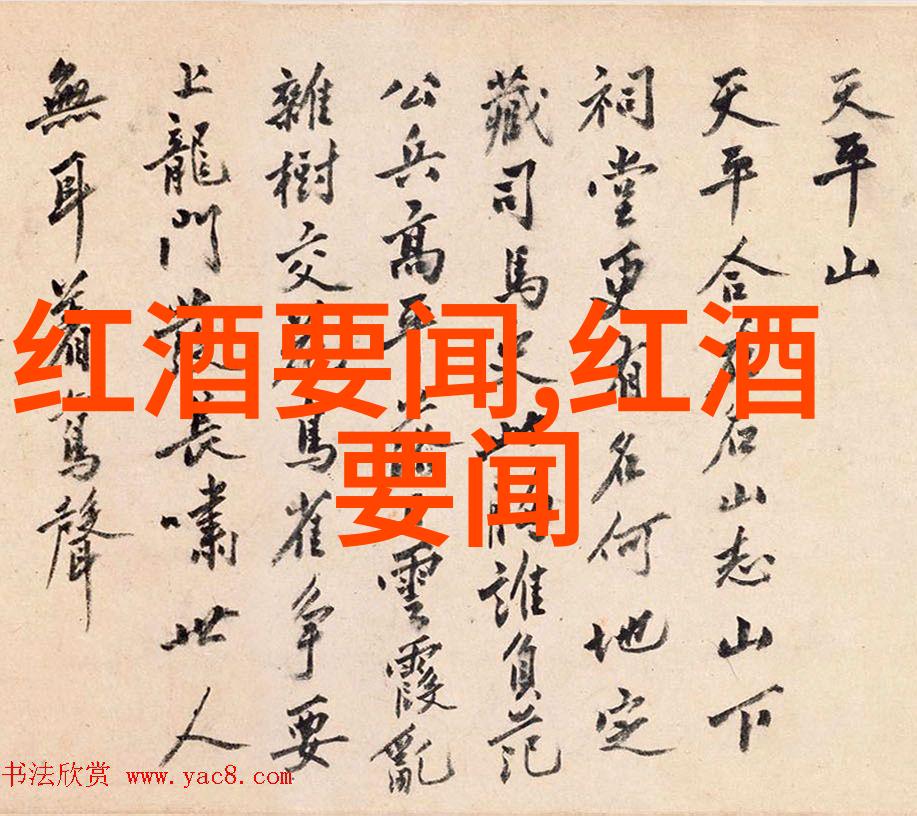 天平山
天平合名山志山下
祠堂更有名何地定
藏司馬史此誰負范
公兵高平雲霞亂
雜樹交鳥雀爭要
上龍門發長嘯世人
無耳聲
红酒要闻,红酒
要闻
书法欣赏 www.yac8.com